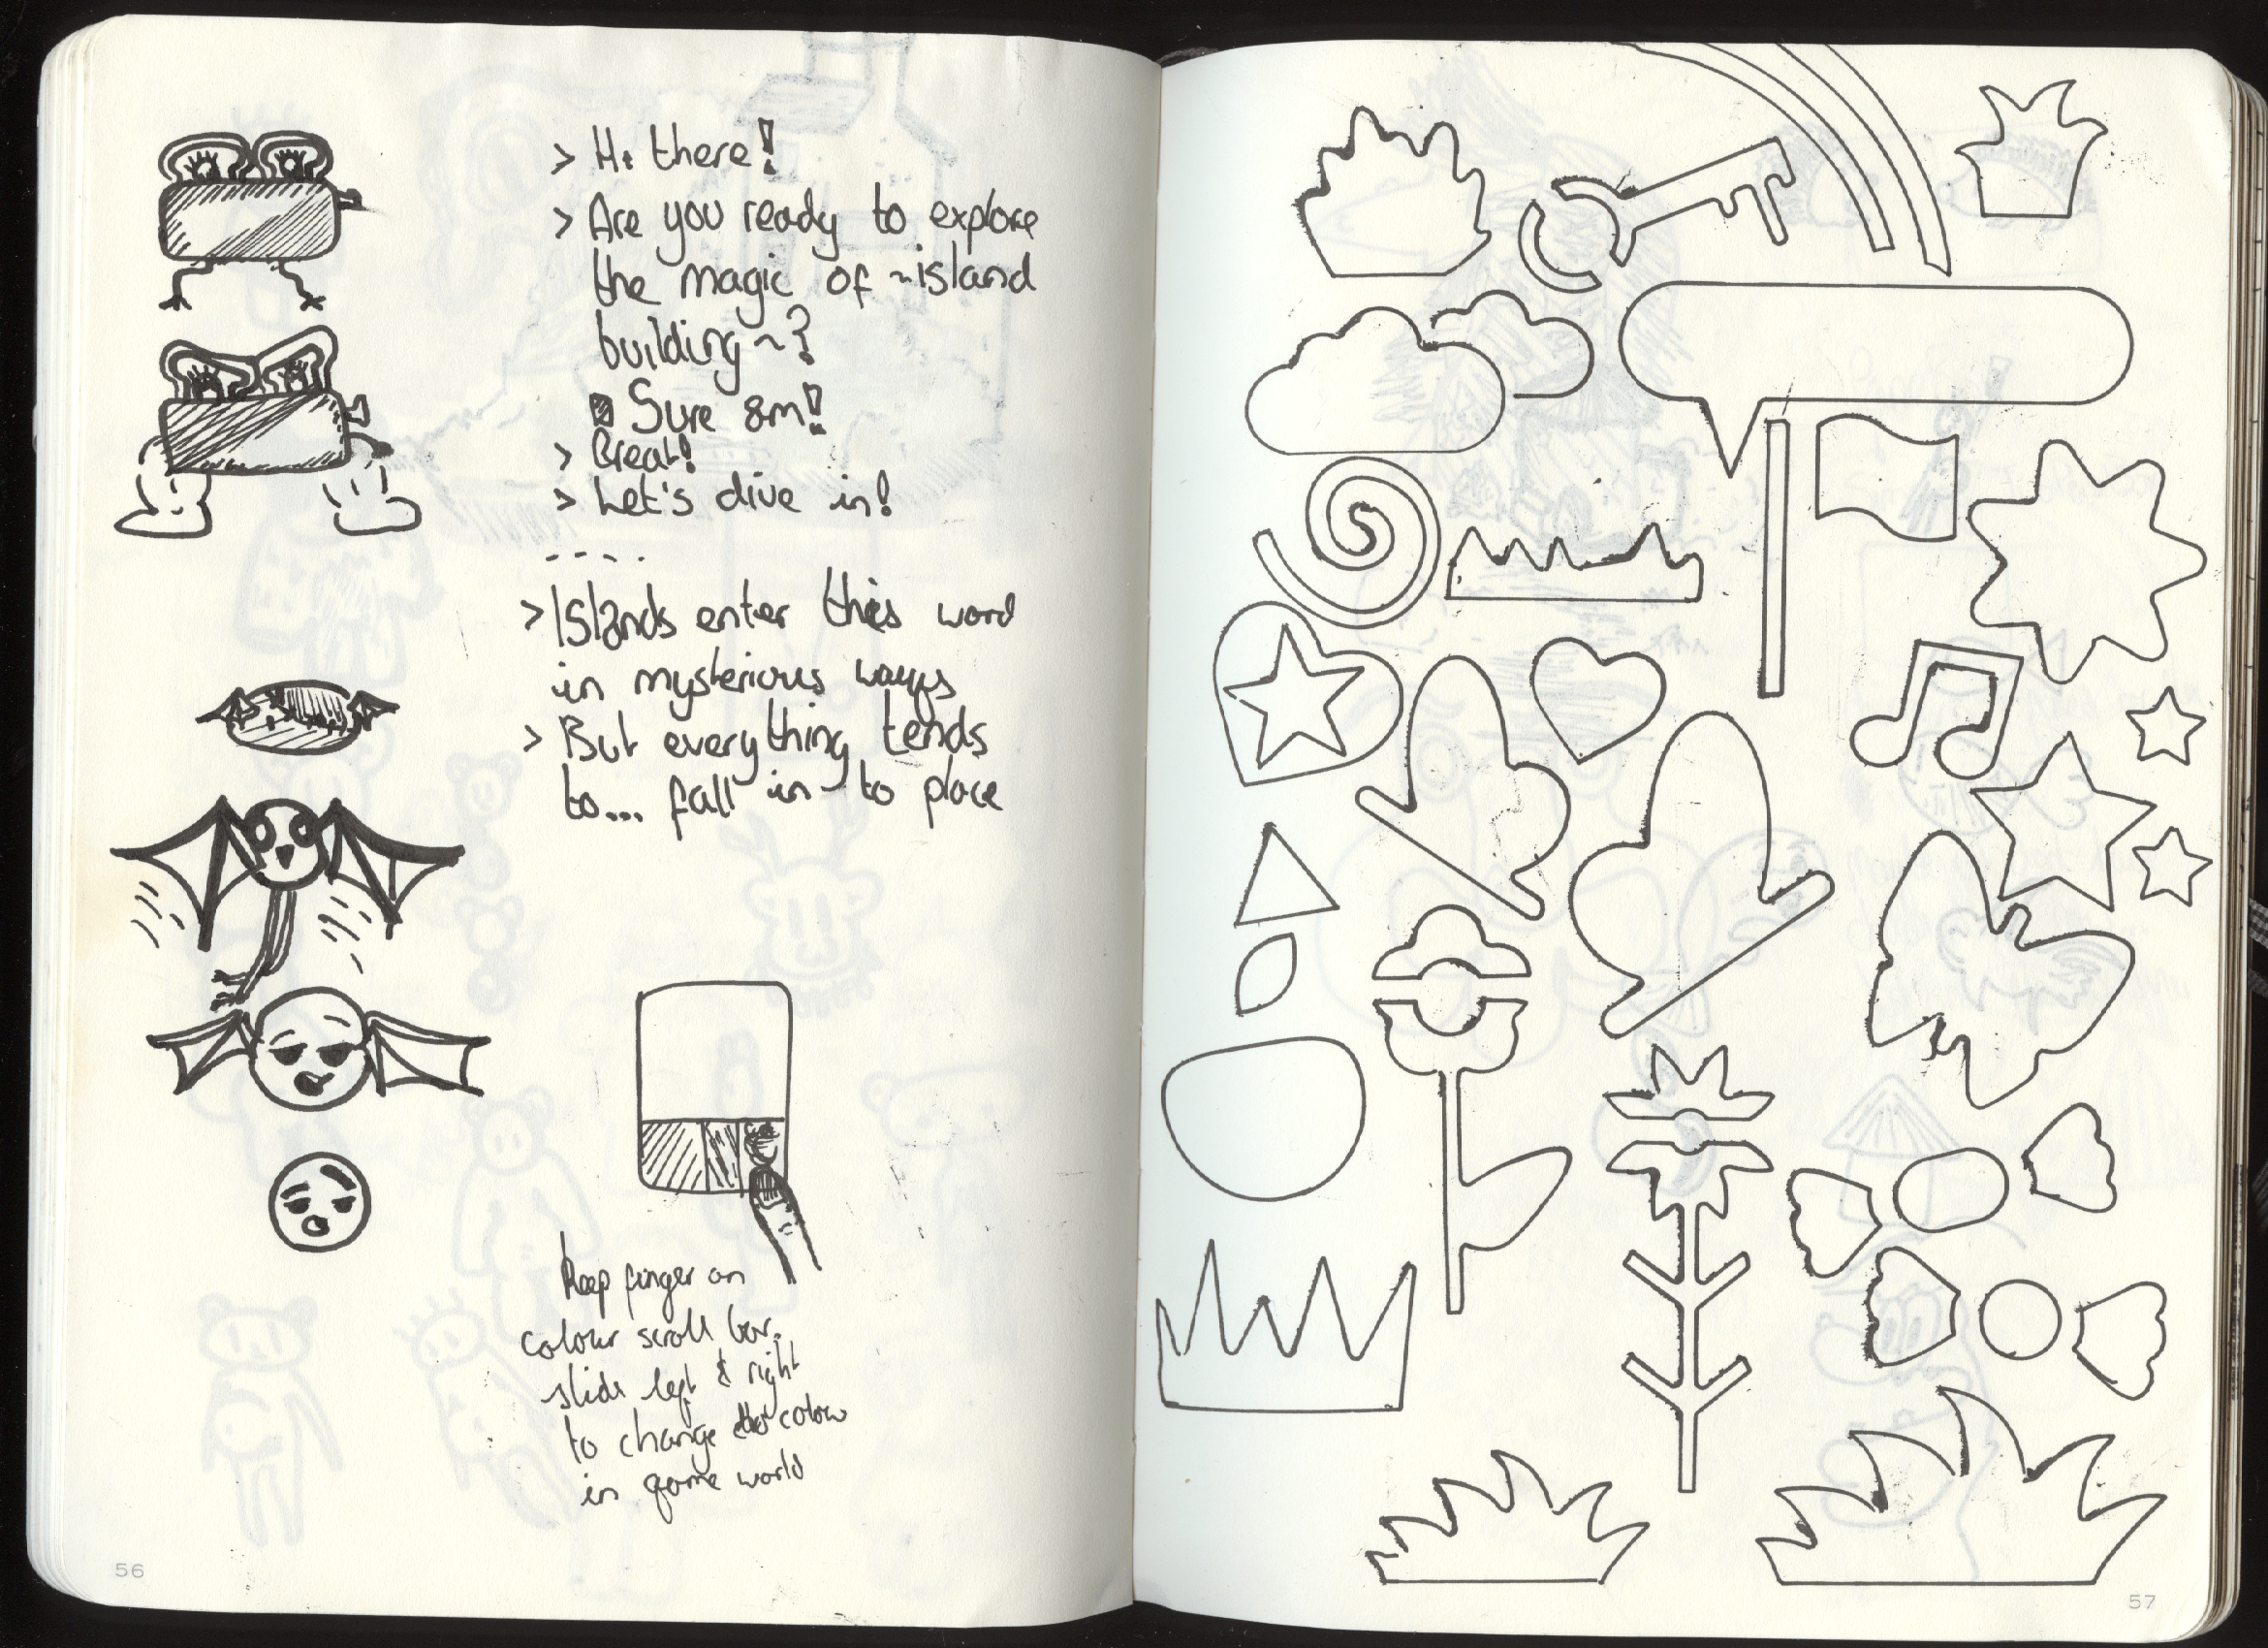 > Hi there!
> Are you ready to explore
the magic of ~island
building~?
Sure am!
> Great!
> Let's dive in!
----
> Islands enter this word
in mysterious ways
> But everything tends
to... fall in to place
Keep finger on
colour scroll bar.
slide left & right
to change colour
in game world
56
57